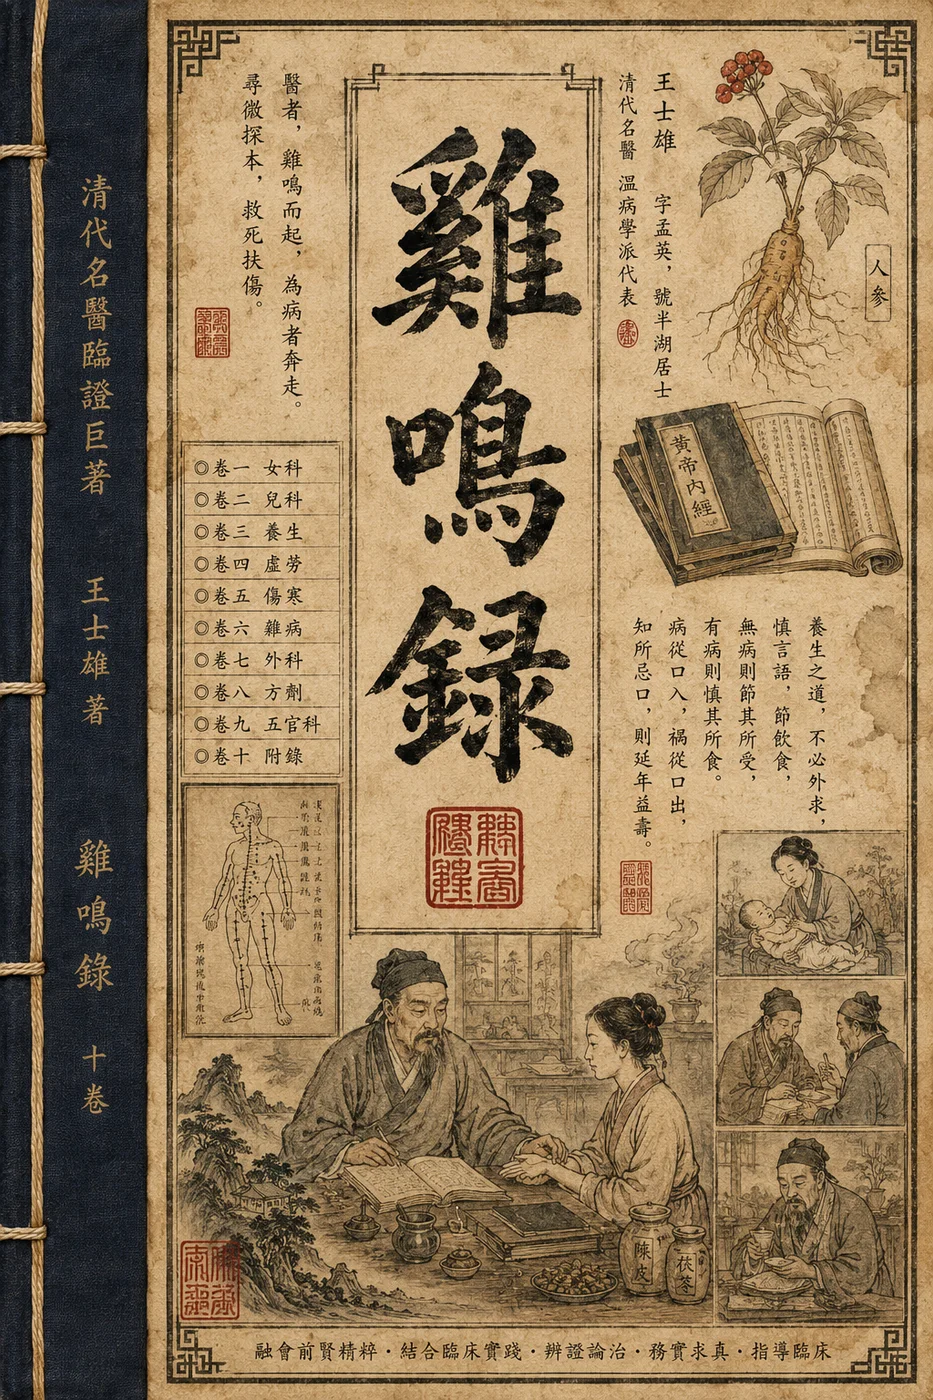 清代名醫臨證巨著 王士雄 著 雞鳴錄 十卷
雞鳴録
王士雄 字孟英，號半湖居士
清代名醫 溫病學派代表
醫者，雞鳴而起，為病者奔走。
尋微探本，救死扶傷。
人參
黃帝內經
◎卷一 女科
◎卷二 兒科
◎卷三 養生
◎卷四 虛勞
◎卷五 傷寒
◎卷六 雜病
◎卷七 外科
◎卷八 方劑
◎卷九 五官科
◎卷十 附錄
養生之道，不必外求，
慎言語，節飲食，
無病則節其所受，
有病則慎其所食。
病從口入，禍從口出，
知所忌口，則延年益壽。
陳皮
茯苓
融會前賢精粹·結合臨床實踐·辨證論治·務實求真·指導臨床